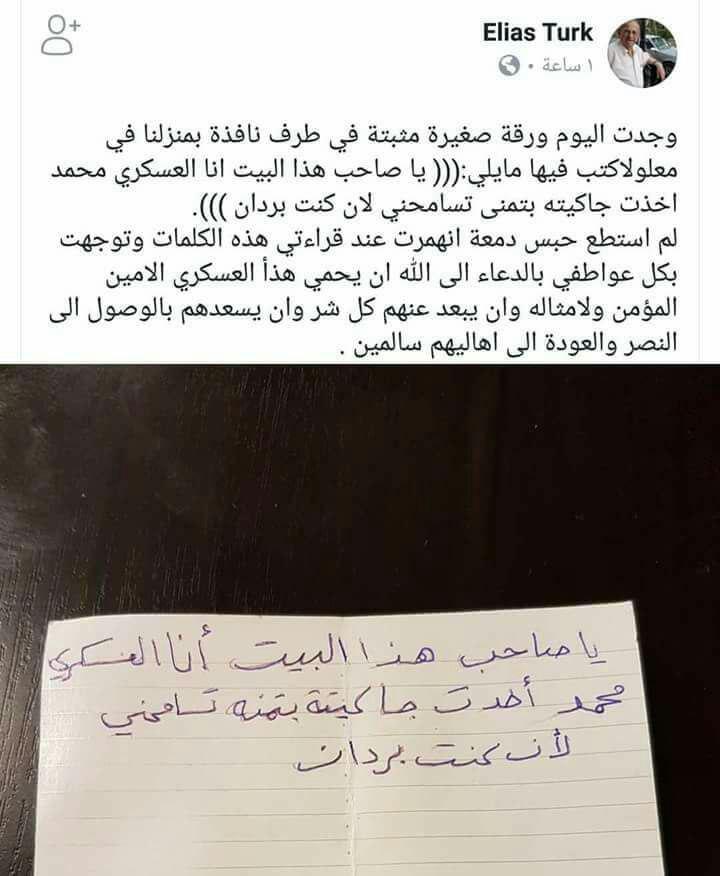 Elias Turk
١ ساعة
وجدت اليوم ورقة صغيرة مثبتة في طرف نافذة بمنزلنا في
معلولاكتب فيها مايلي:((( يا صاحب هذا البيت انا العسكري محمد
اخذت جاكيته بتمنى تسامحني لان كنت بردان ))).
لم استطع حبس دمعة انهمرت عند قراءتي هذه الكلمات وتوجهت
بكل عواطفي بالدعاء الى الله ان يحمي هذأ العسكري الامين
المؤمن ولامثاله وان يبعد عنهم كل شر وان يسعدهم بالوصول الى
النصر والعودة الى اهاليهم سالمين .
يا صاحب هذا البيت أنا العسكري
محمد أخدت جاكيتة بتمنه تسامحني
لأن كنت بردان